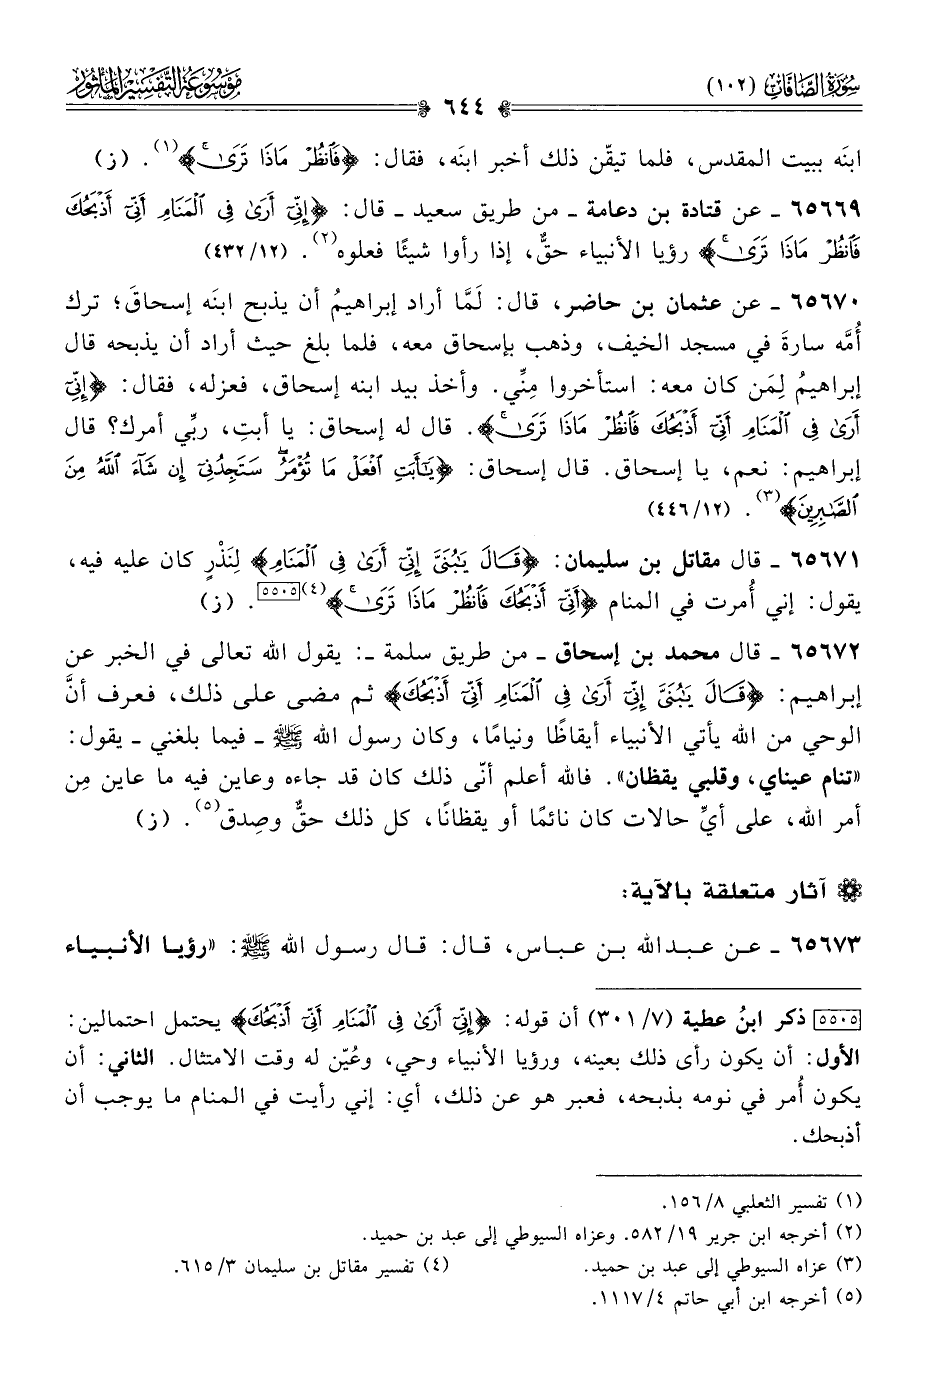 سُورَةُ الصَّافَّاتِ (١٠٢)
موسوعة التفسير المأثور
٦٤٤
ابنَه ببيت المقدس، فلما تيقّن ذلك أخبر ابنَه، فقال: ﴿فَٱنظُرْ مَاذَا تَرَىٰۚ﴾(١). (ز)
٦٥٦٦٩ ـ عن قتادة بن دعامة ـ من طريق سعيد ـ قال: ﴿إِنِّىٓ أَرَىٰ فِى ٱلْمَنَامِ أَنِّىٓ أَذْبَحُكَ
فَٱنظُرْ مَاذَا تَرَىٰۚ﴾ رؤيا الأنبياء حقٌّ، إذا رأوا شيئًا فعلوه(٢). (٤٣٢/١٢)
٦٥٦٧٠ ـ عن عثمان بن حاضر، قال: لَمَّا أراد إبراهيمُ أن يذبح ابنَه إسحاقَ؛ ترك
أُمَّه سارةَ في مسجد الخيف، وذهب بإسحاق معه، فلما بلغ حيث أراد أن يذبحه قال
إبراهيمُ لِمَن كان معه: استأخروا مِنِّي. وأخذ بيد ابنه إسحاق، فعزله، فقال: ﴿إِنِّىٓ
أَرَىٰ فِى ٱلْمَنَامِ أَنِّىٓ أَذْبَحُكَ فَٱنظُرْ مَاذَا تَرَىٰۚ﴾. قال له إسحاق: يا أبتِ، ربِّي أمرك؟ قال
إبراهيم: نعم، يا إسحاق. قال إسحاق: ﴿يَٰٓأَبَتِ ٱفْعَلْ مَا تُؤْمَرُۖ سَتَجِدُنِىٓ إِن شَآءَ ٱللَّهُ مِنَ
ٱلصَّٰبِرِينَ﴾(٣). (٤٤٦/١٢)
٦٥٦٧١ ـ قال مقاتل بن سليمان: ﴿قَالَ يَٰبُنَىَّ إِنِّىٓ أَرَىٰ فِى ٱلْمَنَامِ﴾ لِنَذْرٍ كان عليه فيه،
يقول: إني أُمرت في المنام ﴿أَنِّىٓ أَذْبَحُكَ فَٱنظُرْ مَاذَا تَرَىٰۚ﴾(٤)[٥٥٠٥]. (ز)
٦٥٦٧٢ ـ قال محمد بن إسحاق ـ من طريق سلمة ـ: يقول الله تعالى في الخبر عن
إبراهيم: ﴿قَالَ يَٰبُنَىَّ إِنِّىٓ أَرَىٰ فِى ٱلْمَنَامِ أَنِّىٓ أَذْبَحُكَ﴾ ثم مضى على ذلك، فعرف أنَّ
الوحي من الله يأتي الأنبياء أيقاظًا ونيامًا، وكان رسول الله ﷺ ـ فيما بلغني ـ يقول:
«تنام عيناي، وقلبي يقظان». فالله أعلم أنّى ذلك كان قد جاءه وعاين فيه ما عاين مِن
أمر الله، على أيِّ حالات كان نائمًا أو يقظانًا، كل ذلك حقٌّ وصِدق(٥). (ز)
آثار متعلقة بالآية:
٦٥٦٧٣ ـ عن عبدالله بن عباس، قال: قال رسول الله ﷺ: «رؤيا الأنبياء
[٥٥٠٥] ذكر ابنُ عطية (٧/ ٣٠١) أن قوله: ﴿إِنِّىٓ أَرَىٰ فِى ٱلْمَنَامِ أَنِّىٓ أَذْبَحُكَ﴾ يحتمل احتمالين:
الأول: أن يكون رأى ذلك بعينه، ورؤيا الأنبياء وحي، وعُيّن له وقت الامتثال. الثاني: أن
يكون أُمر في نومه بذبحه، فعبر هو عن ذلك، أي: إني رأيت في المنام ما يوجب أن
أذبحك.
(١) تفسير الثعلبي ٨/ ١٥٦.
(٢) أخرجه ابن جرير ١٩/ ٥٨٢. وعزاه السيوطي إلى عبد بن حميد.
(٣) عزاه السيوطي إلى عبد بن حميد. (٤) تفسير مقاتل بن سليمان ٣/ ٦١٥.
(٥) أخرجه ابن أبي حاتم ٤/ ١١١٧.